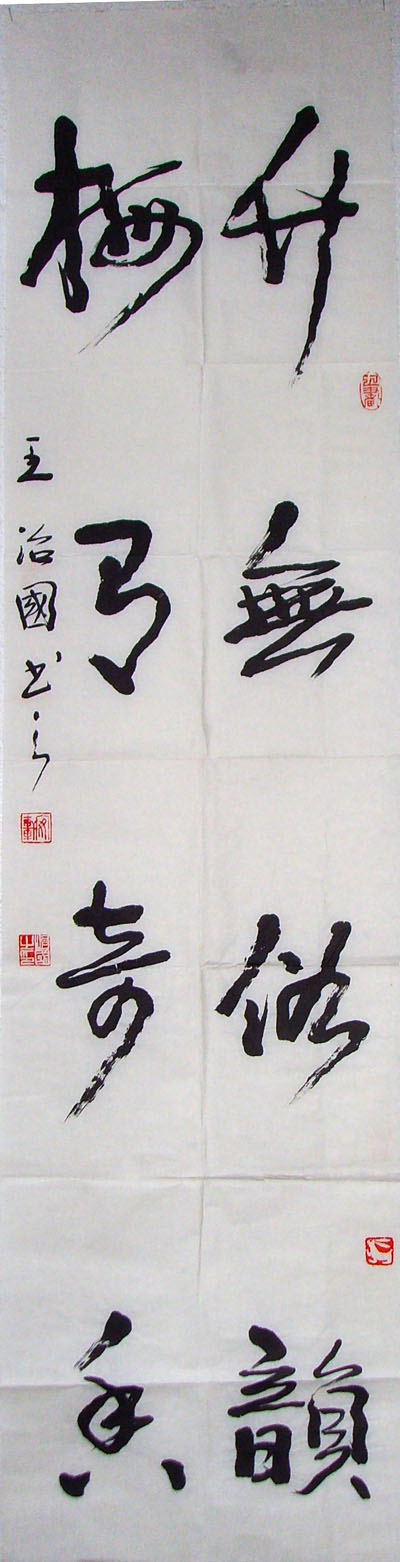 竹無俗韻
梅有奇香
王治國书